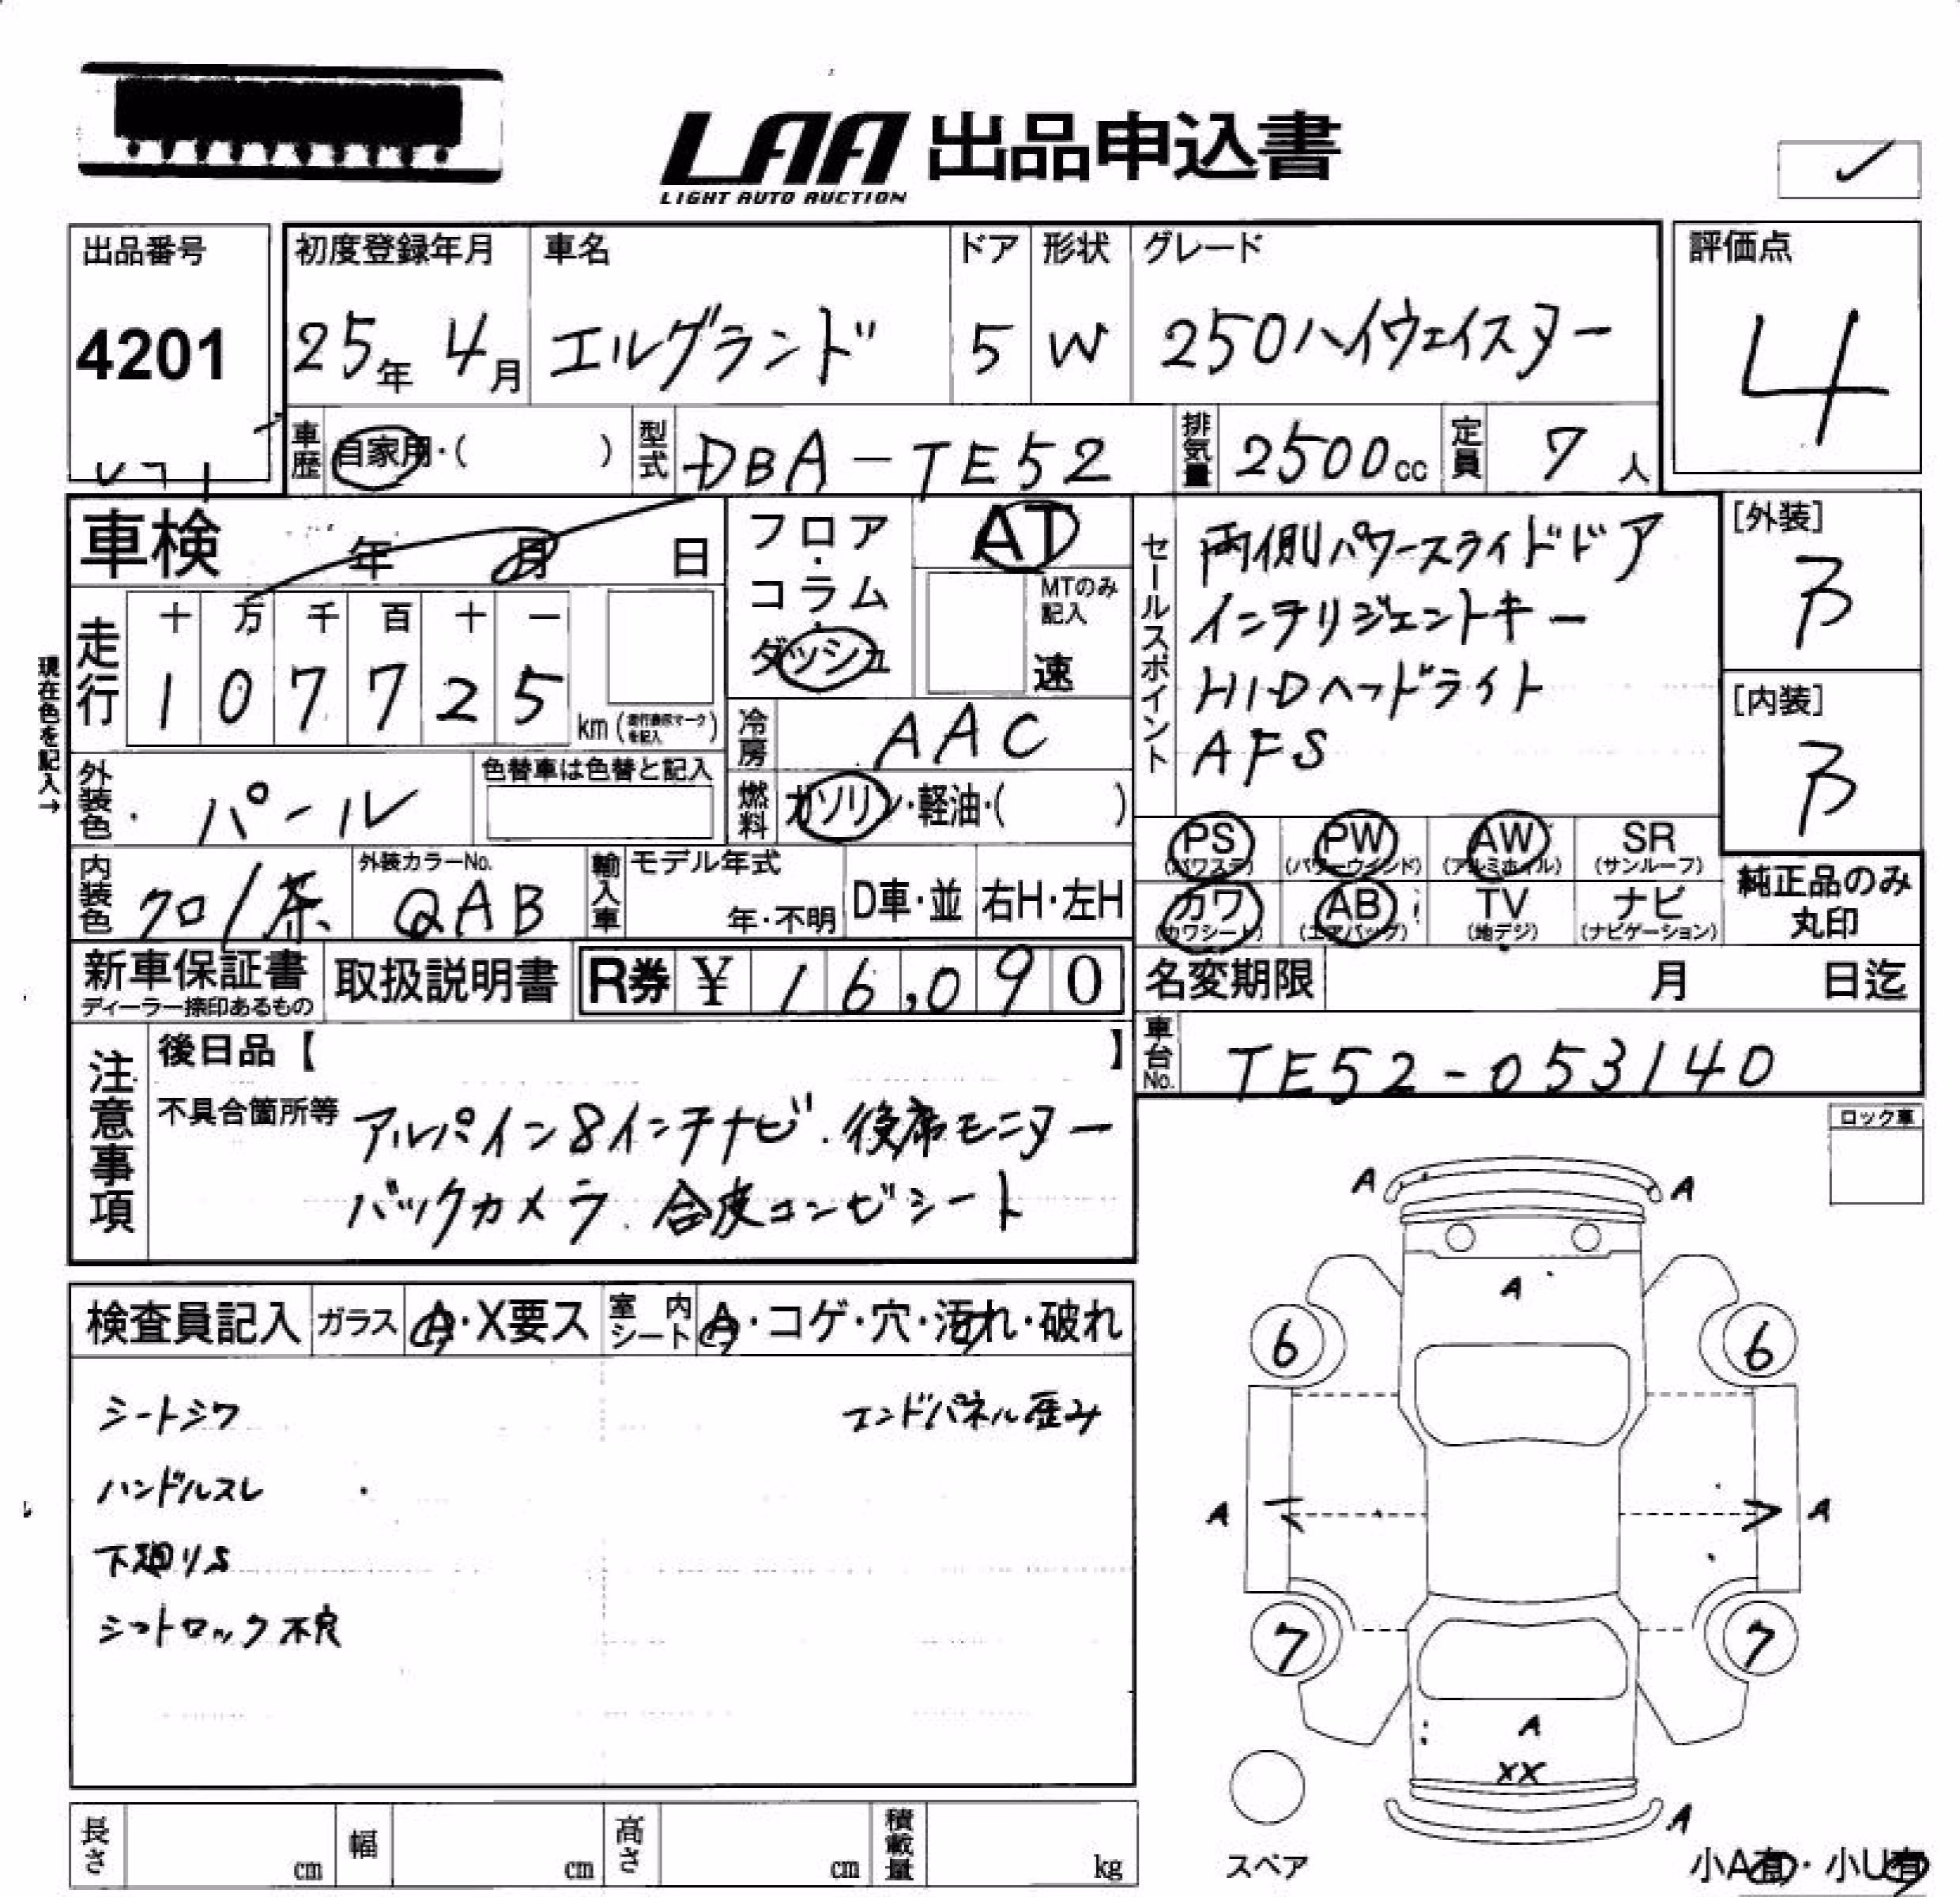 LAA 出品申込書
LIGHT AUTO AUCTION
出品番号
4201
初度登録年月
25年 4月
車名
エルグランド
ドア
5
形状
W
グレード
250ハイウェイスター
評価点
4
車歴 自家用・( )
型式 DBA-TE52
排気量 2500cc
定員 7人
車検 年 月 日
走行
十 万 千 百 十 一
1 0 7 7 2 5
km(走行表示マークを記入)
現在色を記入→
外装色 パール
色替車は色替と記入
内装色 クロ/茶
外装カラーNo.
QAB
フロア・コラム・ダッシュ
AT
MTのみ記入
速
冷房 AAC
燃料 ガソリン・軽油・( )
輸入車 モデル年式
年・不明
D車・並 右H・左H
セールスポイント
両側パワースライドドア
インテリジェントキー
HIDヘッドライト
AFS
[外装]
B
[内装]
B
PS (パワステ) PW (パワーウインド) AW (アルミホイル) SR (サンルーフ)
カワ (カワシート) AB (エアバッグ) TV (地デジ) ナビ (ナビゲーション)
純正品のみ丸印
新車保証書
ディーラー捺印あるもの
取扱説明書
R券 ¥ 16,090
名変期限 月 日迄
車台No. TE52-053140
注意事項
後日品【 】
不具合箇所等 アルパイン8インチナビ.後席モニター
バックカメラ.合皮コンビシート
ロック車
検査員記入 ガラス A・X要ス 室内シート A・コゲ・穴・汚れ・破れ
シートシワ
エンドパネル歪み
ハンドルスレ
下廻りS
シフトロック不良
A A
A
6 6
A A
7 7
A
XX
A
スペア
小A有・小U有
長さ cm 幅 cm 高さ cm 積載量 kg